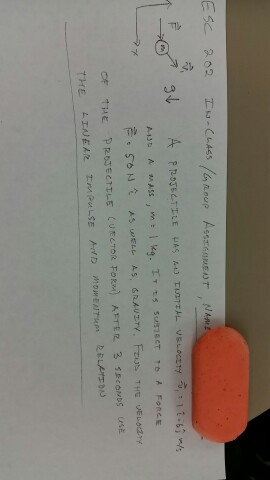 ESC 202 IN-CLASS/GROUP ASSIGNMENT, NAME
y
F
m
V₁
g↓
x
A PROJECTILE HAS AN INITIAL VELOCITY V₁ = 1î + 5ĵ m/s
AND A MASS, m = 1 kg. IT IS SUBJECT TO A FORCE
F = 50 N î AS WELL AS GRAVITY. FIND THE VELOCITY
OF THE PROJECTILE (VECTOR FORM) AFTER 3 SECONDS USE
THE LINEAR IMPULSE AND MOMENTUM RELATION